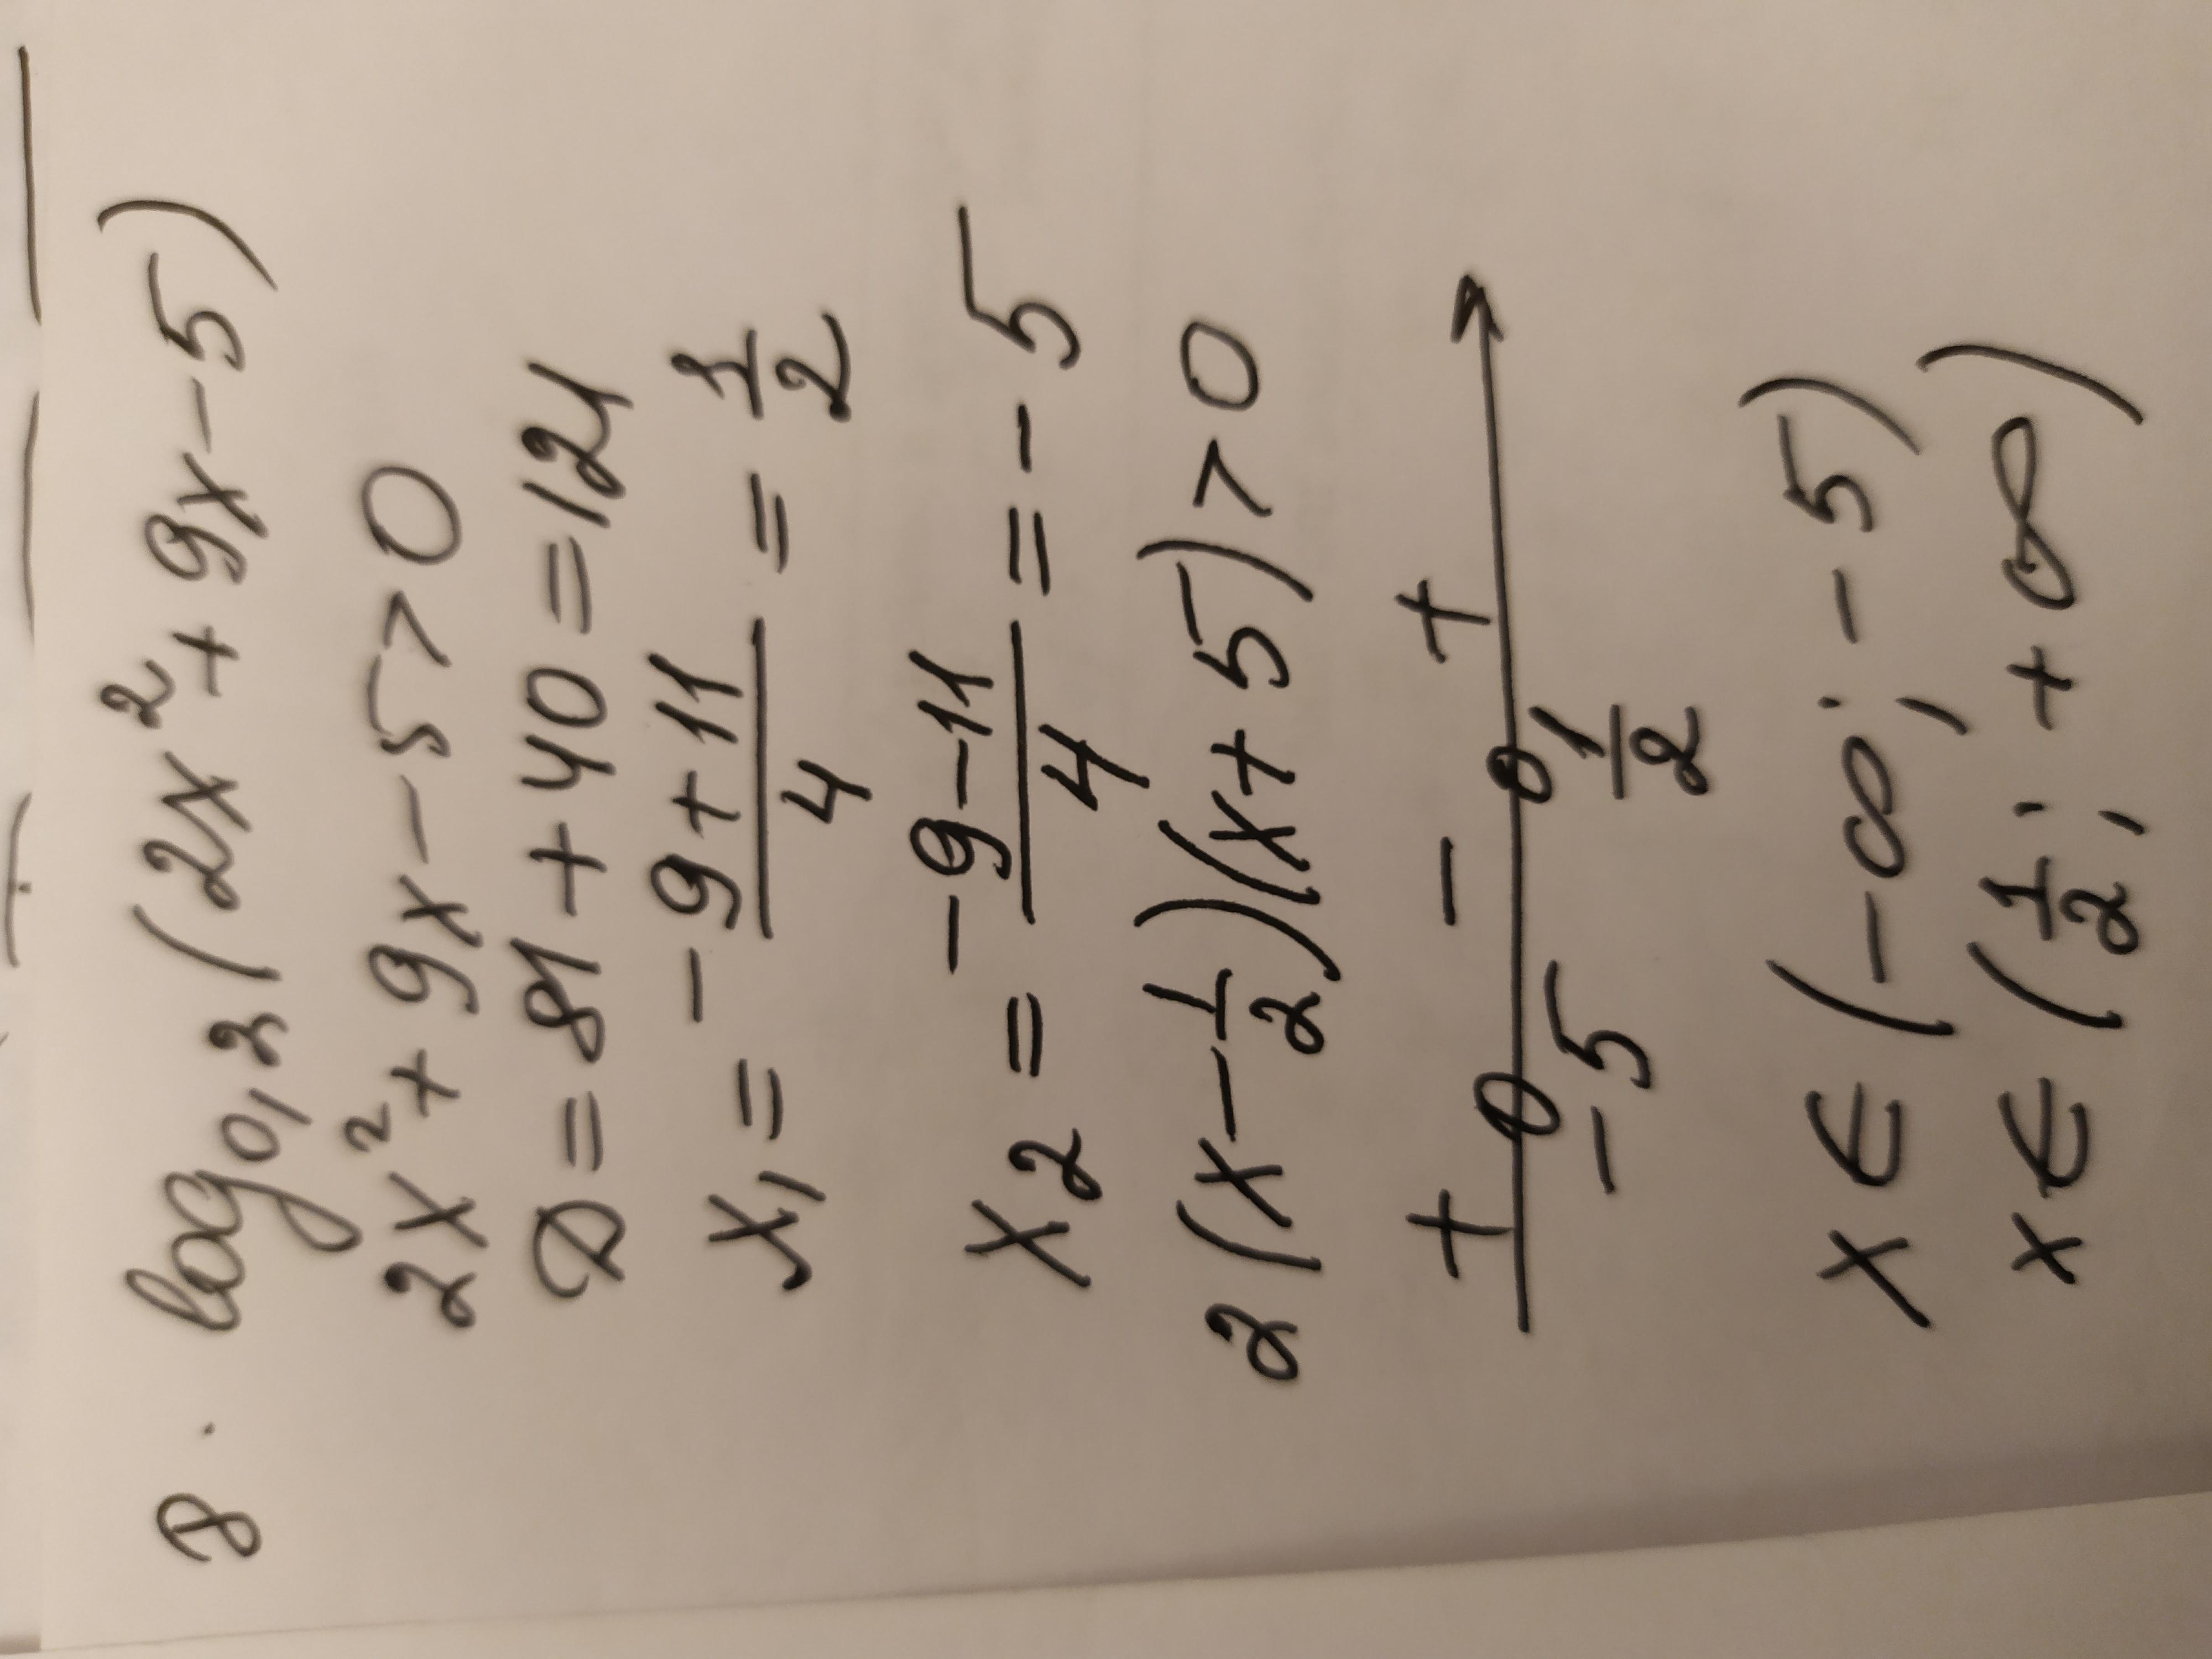 8. log₀,₂(2x²+9x-5)
2x²+9x-5>0
D=81+40=121
x₁=(-9+11)/4=1/2
x₂=(-9-11)/4=-5
2(x-1/2)(x+5)>0
+ - +
-5 1/2
x∈(-∞;-5)
x∈(1/2;+∞)